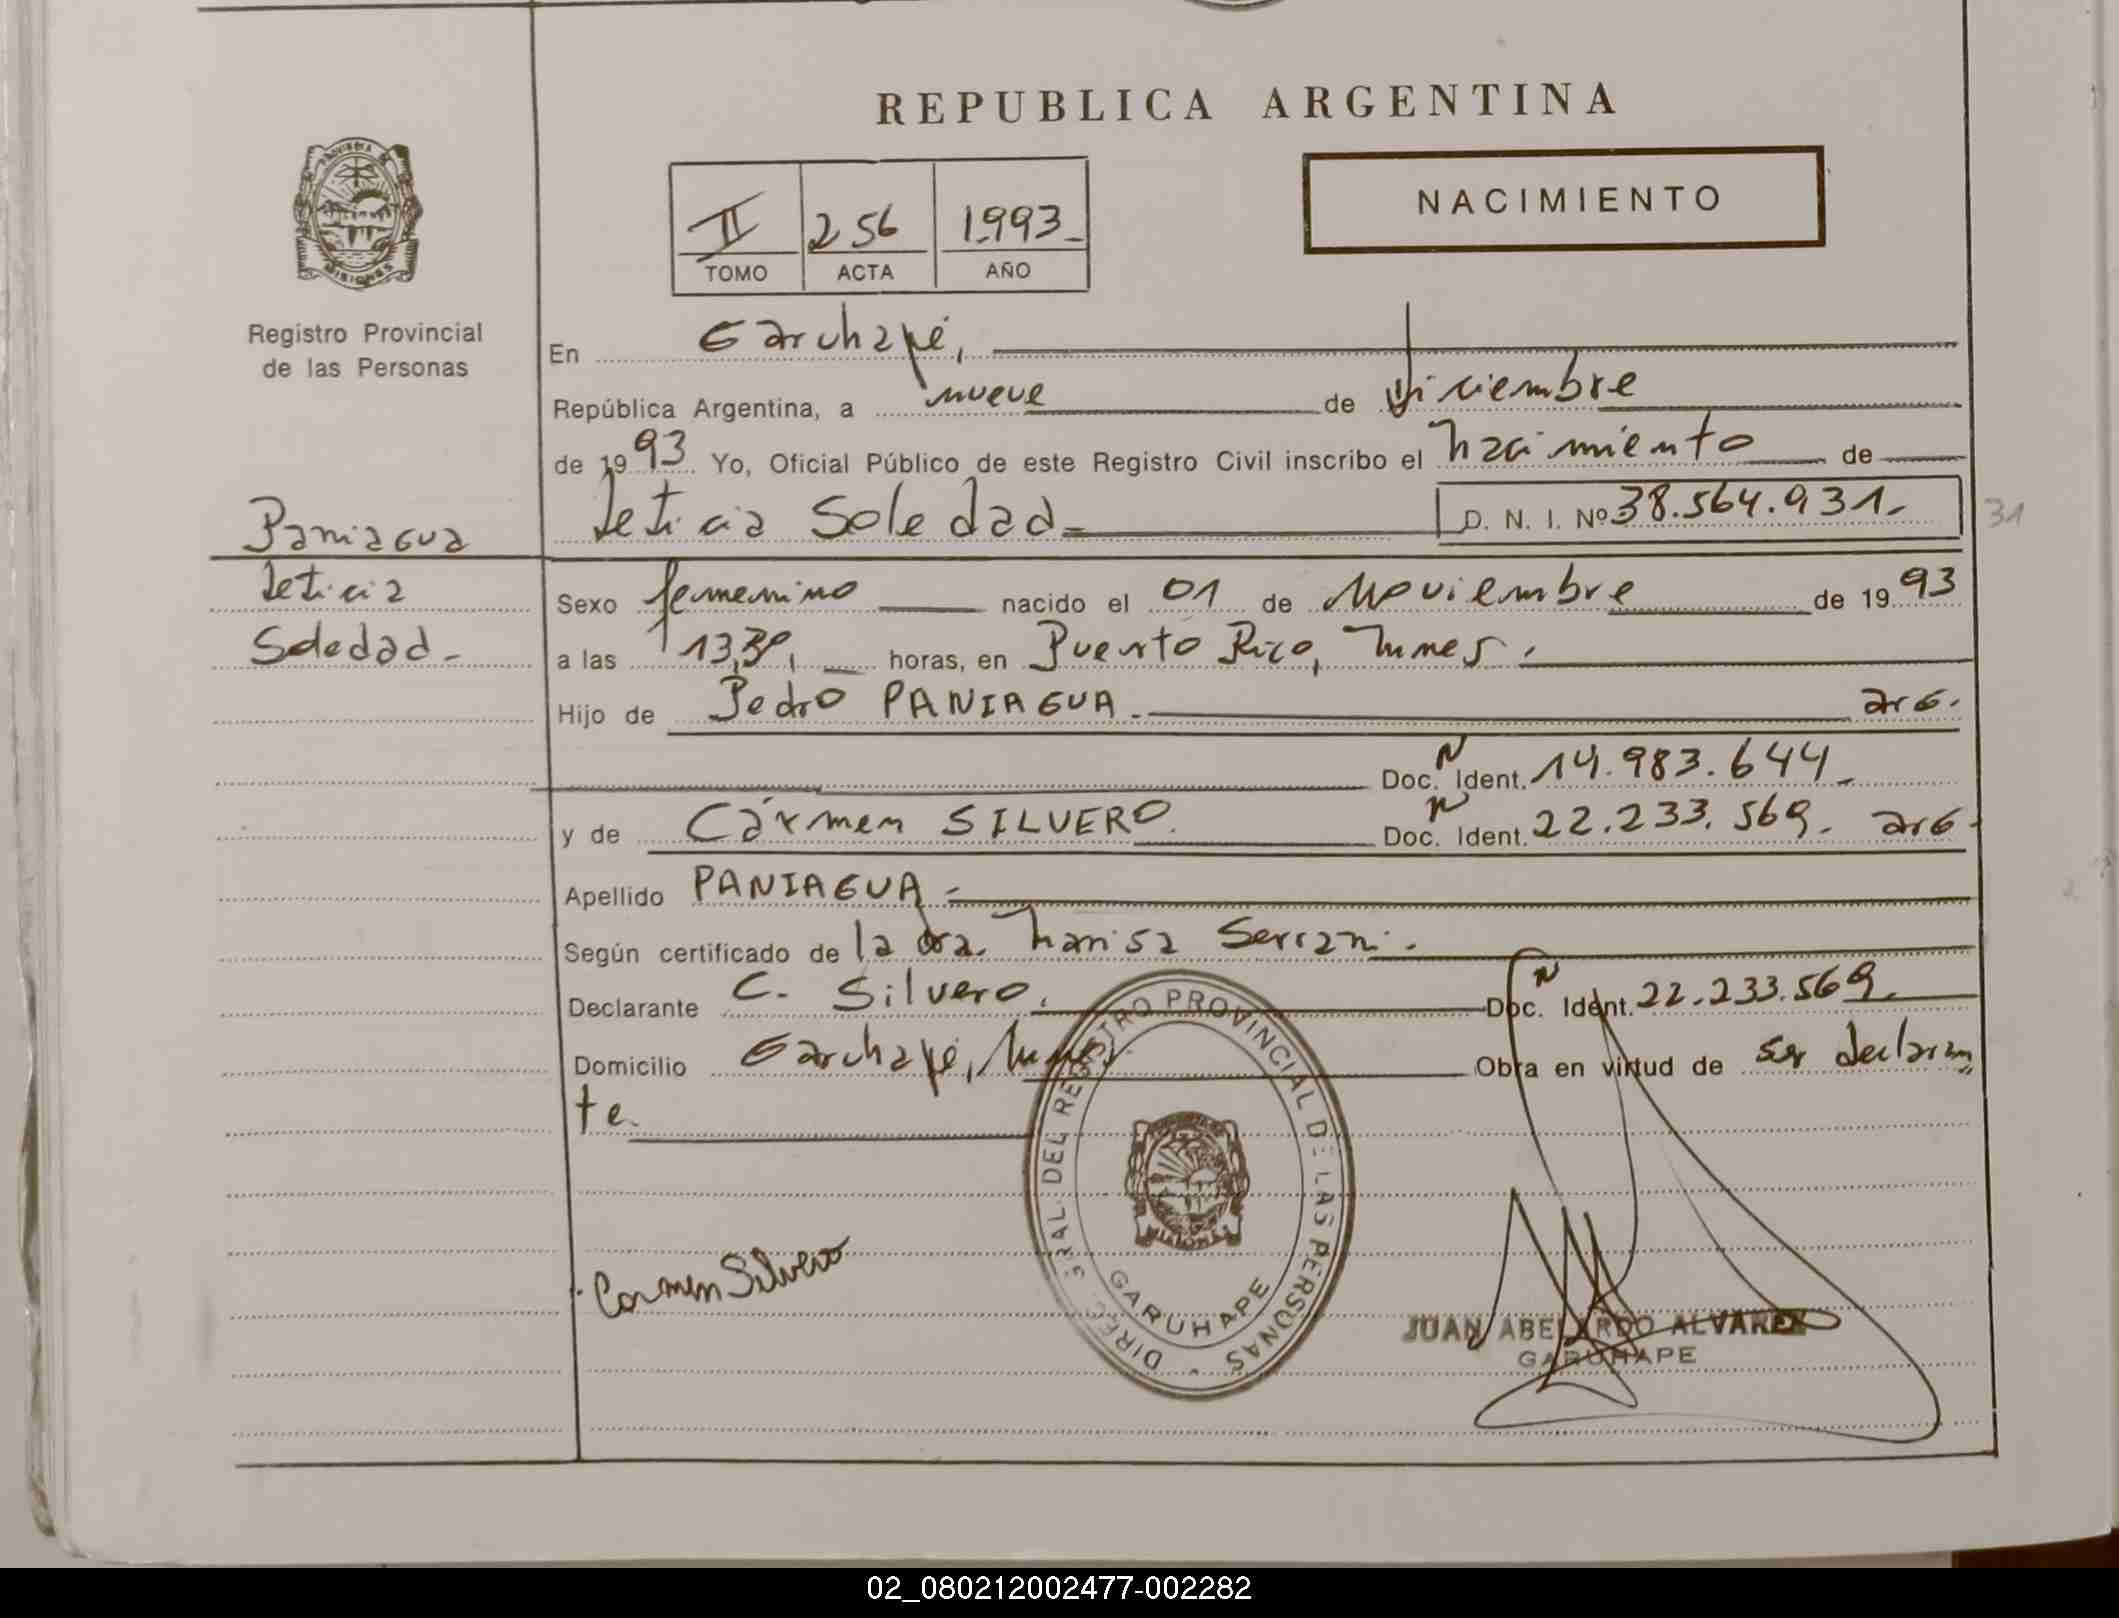 REPUBLICA ARGENTINA
NACIMIENTO
PROVINCIA DE
MISIONES
Registro Provincial
de las Personas
II 256 1993_
TOMO ACTA AÑO
En Garuhapé,
República Argentina, a nueve de diciembre
de 1993 Yo, Oficial Público de este Registro Civil inscribo el nacimiento de
Leticia Soledad D. N. I. Nº 38.564.931.-
31
Paniagua
Leticia
Soledad.-
Sexo femenino nacido el 01 de Noviembre de 1993
a las 13,30, horas, en Puerto Rico, Mnes.
Hijo de Pedro PANIAGUA.- arg.
Doc. N Ident. 14.983.644.-
y de Cármen SILVERO. Doc. N Ident. 22.233.569. arg.
Apellido PANIAGUA.-
Según certificado de la dra. Marisa
Declarante C. Silvero. Doc. N Ident. 22.233.569.
Domicilio Garuhapé, Mnes. Obra en virtud de ser declaran
te.
DIREC GRAL. DEL REGISTRO PROVINCIAL DE LAS PERSONAS
MISIONES
GARUHAPE
Carmen Silvero
JUAN ABELARDO ALVAREZ
GARUHAPE
02_080212002477-002282